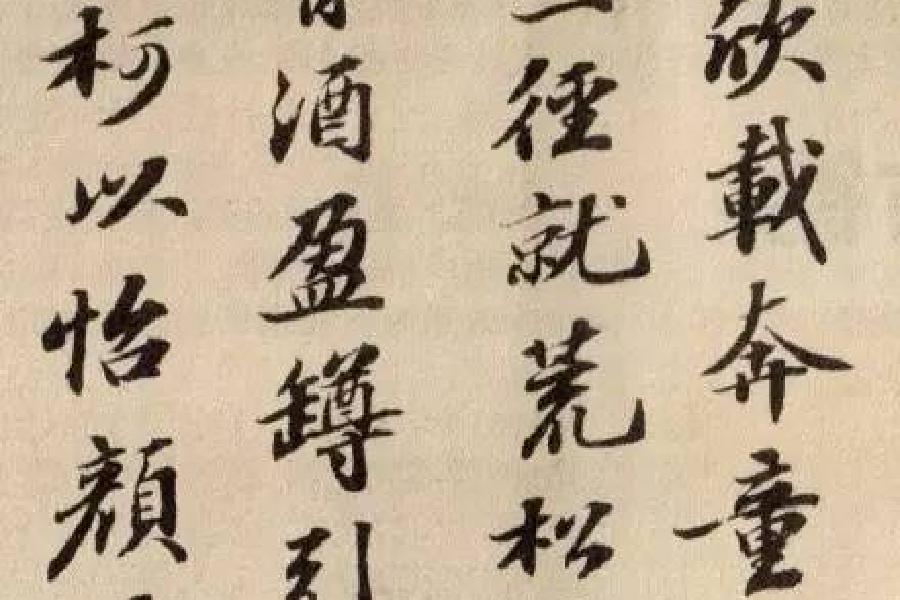 欣載奔童
徑就荒松
酒盈罇引
柯以怡顏